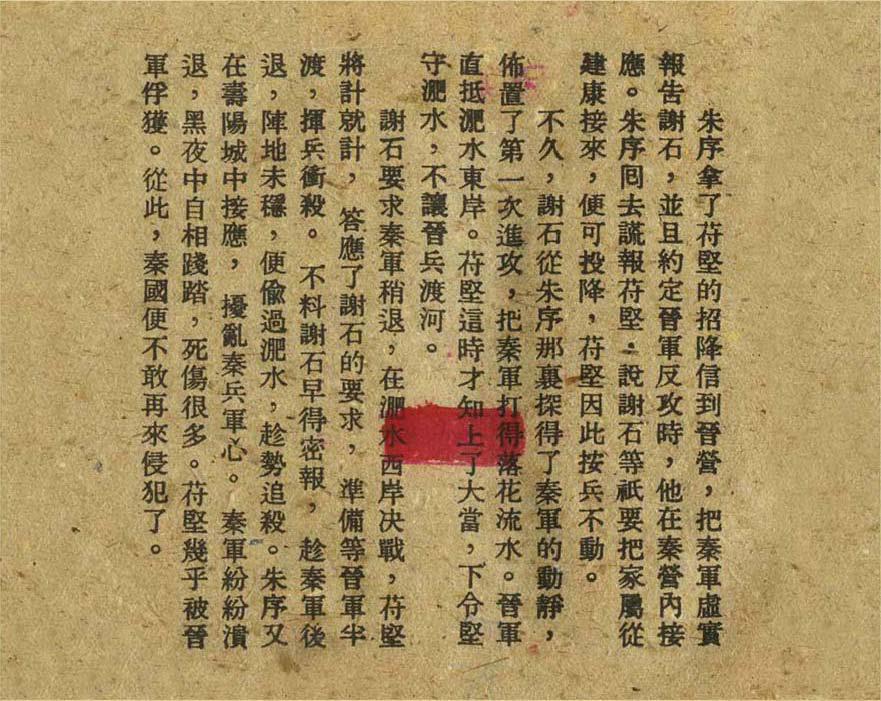 朱序拿了苻堅的招降信到晉營，把秦軍虛實
報告謝石，並且約定晉軍反攻時，他在秦營內接
應。朱序囘去謊報苻堅．說謝石等祇要把家屬從
建康接來，便可投降，苻堅因此按兵不動。
不久，謝石從朱序那裏探得了秦軍的動靜，
佈置了第一次進攻，把秦軍打得落花流水。晉軍
直抵淝水東岸。苻堅這時才知上了大當，下令堅
守淝水，不讓晉兵渡河。
謝石要求秦軍稍退，在淝水西岸决戰，苻堅
將計就計，答應了謝石的要求，準備等晉軍半
渡，揮兵衝殺。不料謝石早得密報，趁秦軍後
退，陣地未穩，便偸過淝水，趁勢追殺。朱序又
在壽陽城中接應，擾亂秦兵軍心。秦軍紛紛潰
退，黑夜中自相踐踏，死傷很多。苻堅幾乎被晉
軍俘獲。從此，秦國便不敢再來侵犯了。